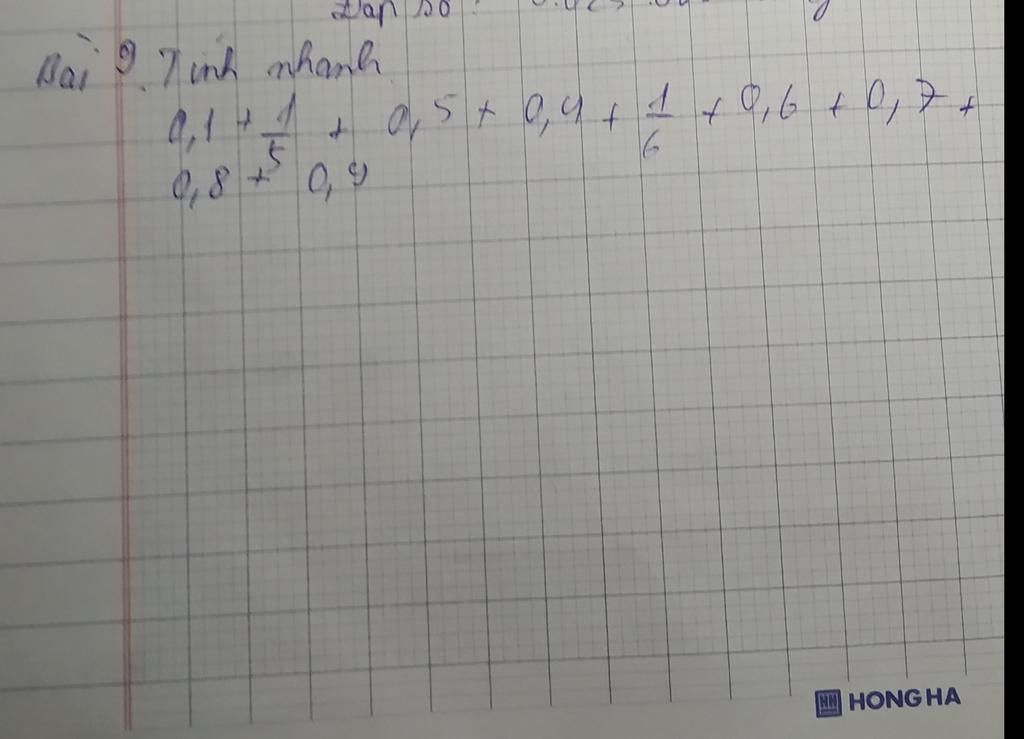 Đáp số:
Bài 9. Tính nhanh
0,1 + 1/5 + 0,5 + 0,4 + 1/6 + 0,6 + 0,7 +
0,8 + 0,9
HH HONG HA